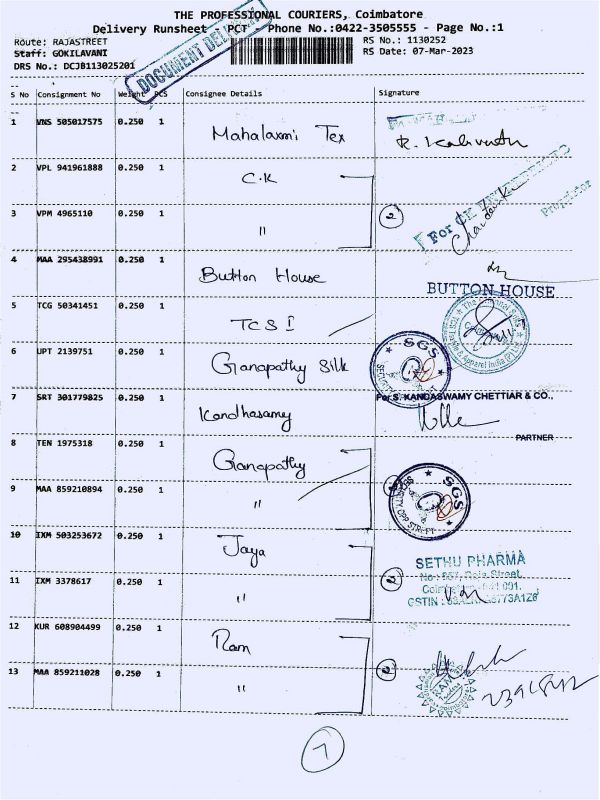 THE PROFESSIONAL COURIERS, Coimbatore
Delivery Runsheet - PCT - Phone No.:0422-3505555 - Page No.:1
Route: RAJASTREET
Staff: GOKILAVANI
DRS No.: DCJB113025201
RS No.: 1130252
RS Date: 07-Mar-2023
DOCUMENT DELIVERY
S No Consignment No Weight PCS Consignee Details Signature
1 VNS 505017575 0.250 1 Mahalaxmi Tex
2 VPL 941961888 0.250 1 C.K
3 VPM 4965110 0.250 1 " 2
For CK
Proprietor
4 MAA 295438991 0.250 1 Button House
BUTTON HOUSE
5 TCG 50341451 0.250 1 TCS I
6 UPT 2139751 0.250 1 Ganapathy Silk SGS
7 SRT 301779825 0.250 1 Kandhasamy
For S. KANDASWAMY CHETTIAR & CO.,
PARTNER
8 TEN 1975318 0.250 1 Ganapathy
9 MAA 859210894 0.250 1 " SGS
10 IXM 503253672 0.250 1 Jaya
SETHU PHARMA
11 IXM 3378617 0.250 1 " 2
12 KUR 608904499 0.250 1 Ram
13 MAA 859211028 0.250 1 " 2
7